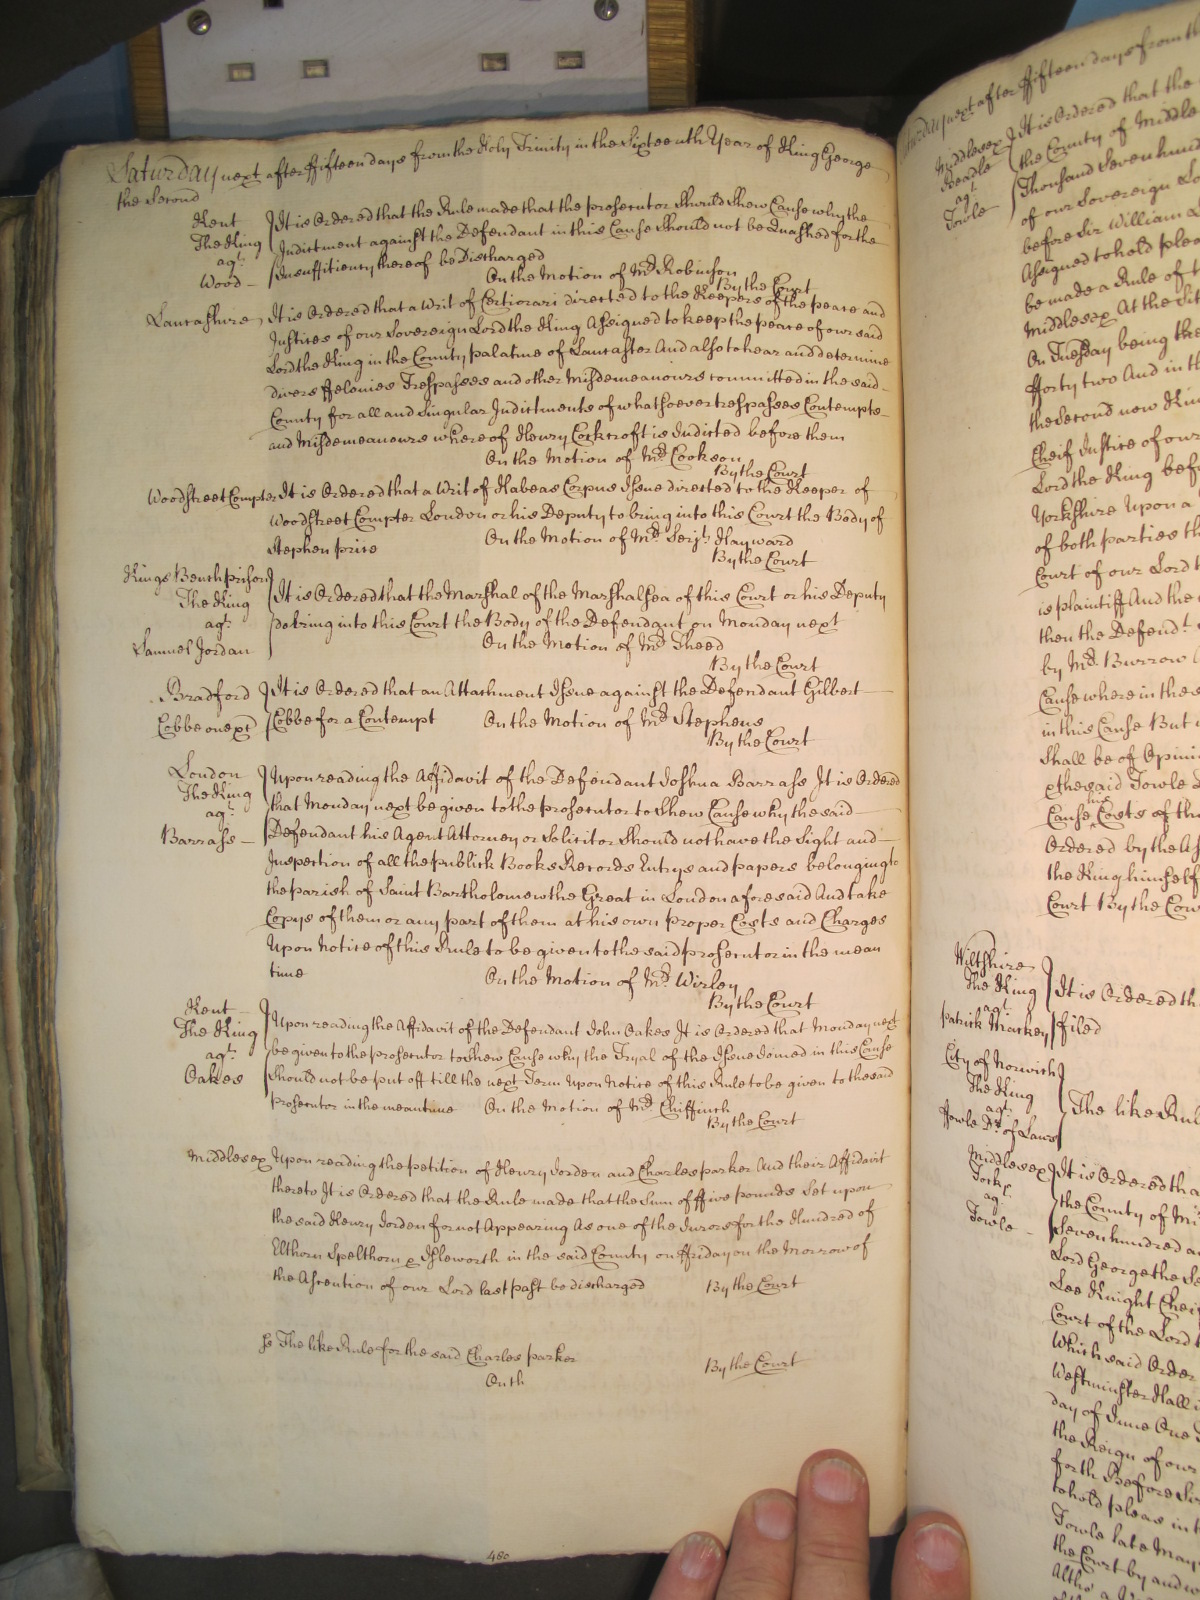 Saturday next after ffifteen days from the Holy Trinity in the Sixteenth Year of King George
the Second
Kent
The King
agt.
Wood
It is Ordered that the Rule made that the prosecutor Should Shew Cause why the
Indictment against the Defendant in this Cause Should not be Quashed for the
Insufficiency thereof be Discharged
On the Motion of Mr. Robinson
By the Court
Lancashire
It is Ordered that a Writ of Certiorari directed to the Keepers of the peace and
Justices of our Sovereign Lord the King Assigned to keep the peace of our said
Lord the King in the County palatine of Lancaster And also to hear and determine
divers ffelonies Trespasses and other Misdemeanours committed in the said
County for all and Singular Indictments of whatsoever trespasses Contempts
and Misdemeanours whereof Henry Cockcroft is Indicted before them
On the Motion of Mr. Cookson
By the Court
Woodstreet Compter
It is Ordered that a Writ of Habeas Corpus Issue directed to the Keeper of
Woodstreet Compter London or his Deputy to bring into this Court the Body of
Stephen price
On the Motion of Mr. Serjt. Hayward
By the Court
Kings Bench prison
The King
agt.
Samuel Jordan
It is Ordered that the Marshal of the Marshalsea of this Court or his Deputy
do bring into this Court the Body of the Defendant on Monday next
On the Motion of Mr. Theed
By the Court
Bradford
Cobbe one &c
It is Ordered that an Attachment Issue against the Defendant Gilbert
Cobbe for a Contempt
On the Motion of Mr. Stephens
By the Court
London
The King
agt.
Barrass
Upon reading the Affidavit of the Defendant Joshua Barrass It is Ordered
that Monday next be given to the prosecutor to Shew Cause why the said
Defendant his Agent Attorney or Solicitor Should not have the Sight and
Inspection of all the publick Books Records Entrys and papers belonging to
the parish of Saint Bartholomew the Great in London aforesaid And take
Copys of them or any part of them at his own proper Costs and Charges
Upon Notice of this Rule to be given to the said prosecutor in the mean
time
On the Motion of Mr. Wirley
By the Court
Kent
The King
agt.
Oakes
Upon reading the Affidavit of the Defendant John Oakes It is Ordered that Monday next
be given to the prosecutor to Shew Cause why the Tryal of the Issue Joined in this Cause
Should not be put off till the next Term Upon Notice of this Rule to be given to the said
prosecutor in the meantime
On the Motion of Mr. Chiffinch
By the Court
Middlesex
Upon reading the petition of Henry Jorden and Charles parker And their Affidavit
thereto It is Ordered that the Rule made that the Sum of ffive pounds Set upon
the said Henry Jorden for not Appearing As one of the Jurors for the Hundred of
Elthorn Spelthorn & Isleworth in the said County on ffriday on the Morrow of
the Ascention of our Lord last past be discharged
By the Court
The like Rule for the said Charles parker
By the Court
On th
480
next after ffifteen days from th
Middlesex
Beadle
agt.
Towle
It is Ordered that the
the County of Middle
Thousand Seven hund
of our Sovereign Lo
before Sir William L
Assigned to hold plea
be made a Rule of t
Middlesex At the Sit
On Tuesday being the
fforty two And in th
the Second now Kin
Cheif Justice of our
Lord the King bef
Yorkshire Upon a
of both parties th
Court of our Lord t
is plaintiff And the
then the Defendt.
by Mr. Burrow
Cause where in the s
in this Cause But
Shall be of Opini
& the said Towle
Cause Costs of th
Ordered by the As
the King himself
Court By the Cou
Wiltshire
The King
agt.
Patrick Markey
It is Ordered th
filed
City of Norwich
The King
agt.
ffowle Dr. of Laws
The like Rul
Middlesex
agt.
Towle
It is Ordered tha
the County of Mi
Seven hundred a
Lord George the Se
Lee Knight Chei
Court of the Lord
Which said Order
Westminster Hall i
day of June One
the Reign of our
forth Before Si
to hold pleas in t
Towle late May
the Court by and w